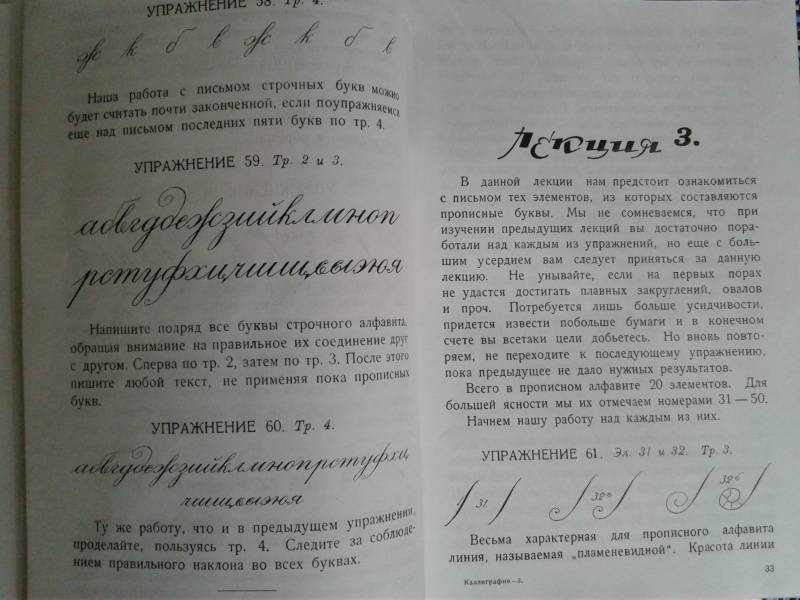 УПРАЖНЕНИЕ 58. Тр. 4.
ж к б в ж к б в
Наша работа с письмом строчных букв можно
будет считать почти законченной, если поупражняемся
еще над письмом последних пяти букв по тр. 4.
УПРАЖНЕНИЕ 59. Тр. 2 и 3.
абвгдежзийклмноп
рстуфхцчшщъыьэюя
Напишите подряд все буквы строчного алфавита,
обращая внимание на правильное их соединение друг
с другом. Сперва по тр. 2, затем по тр. 3. После этого
пишите любой текст, не применяя пока прописных
букв.
УПРАЖНЕНИЕ 60. Тр. 4.
абвгдежзийклмнопрстуфхц
чшщъыьэюя
Ту же работу, что и в предыдущем упражнении,
проделайте, пользуясь тр. 4. Следите за соблюде-
нием правильного наклона во всех буквах.
Лекция 3.
В данной лекции нам предстоит ознакомиться
с письмом тех элементов, из которых составляются
прописные буквы. Мы не сомневаемся, что при
изучении предыдущих лекций вы достаточно пора-
ботали над каждым из упражнений, но еще с боль-
шим усердием вам следует приняться за данную
лекцию. Не унывайте, если на первых порах
не удастся достигать плавных закруглений, овалов
и проч. Потребуется лишь больше усидчивости,
придется извести побольше бумаги и в конечном
счете вы всетаки цели добьетесь. Но вновь повто-
ряем, не переходите к последующему упражнению,
пока предыдущее не дало нужных результатов.
Всего в прописном алфавите 20 элементов. Для
большей ясности мы их отмечаем номерами 31—50.
Начнем нашу работу над каждым из них.
УПРАЖНЕНИЕ 61. Эл. 31 и 32. Тр. 3.
31. 32а 32б
Весьма характерная для прописного алфавита
линия, называемая „пламеневидной“. Красота линии
Каллиграфия—3.
33